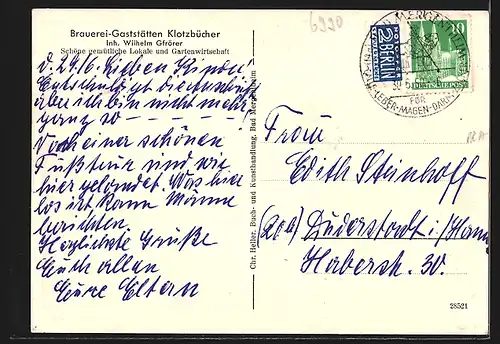 Brauerei-Gaststätten Klotzbücher
Inh. Wilhelm Gfrörer
Schöne gemütliche Lokale und Gartenwirtschaft
d. 29/6. Lieben Kinder!
Entschuldigt die
aber ich bin nicht mehr
ganz so
Nach einer schönen
Fußtour sind wir
hier gelandet. Was hier
los ist kann Mama
berichten.
Herzlichste Grüße
Euch allen
Eure Eltern
Chr. Heller, Buch- und Kunsthandlung, Bad Mergentheim
6990
BAD MERGENTHEIM
LEBER-MAGEN-DARM
FÜR
NOTOPFER
2 BERLIN
STEUERMARKE
10
DEUTSCHE POST
Frau
Edith Steinhoff
(20b) Duderstadt i/Hann.
Haberstr. 30.
28521